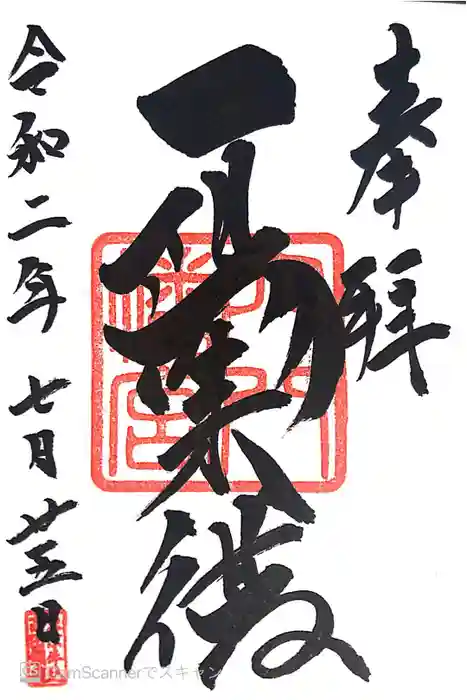 奉拝
一陽来復
令和二年七月廿五日
CS CamScannerでスキャン